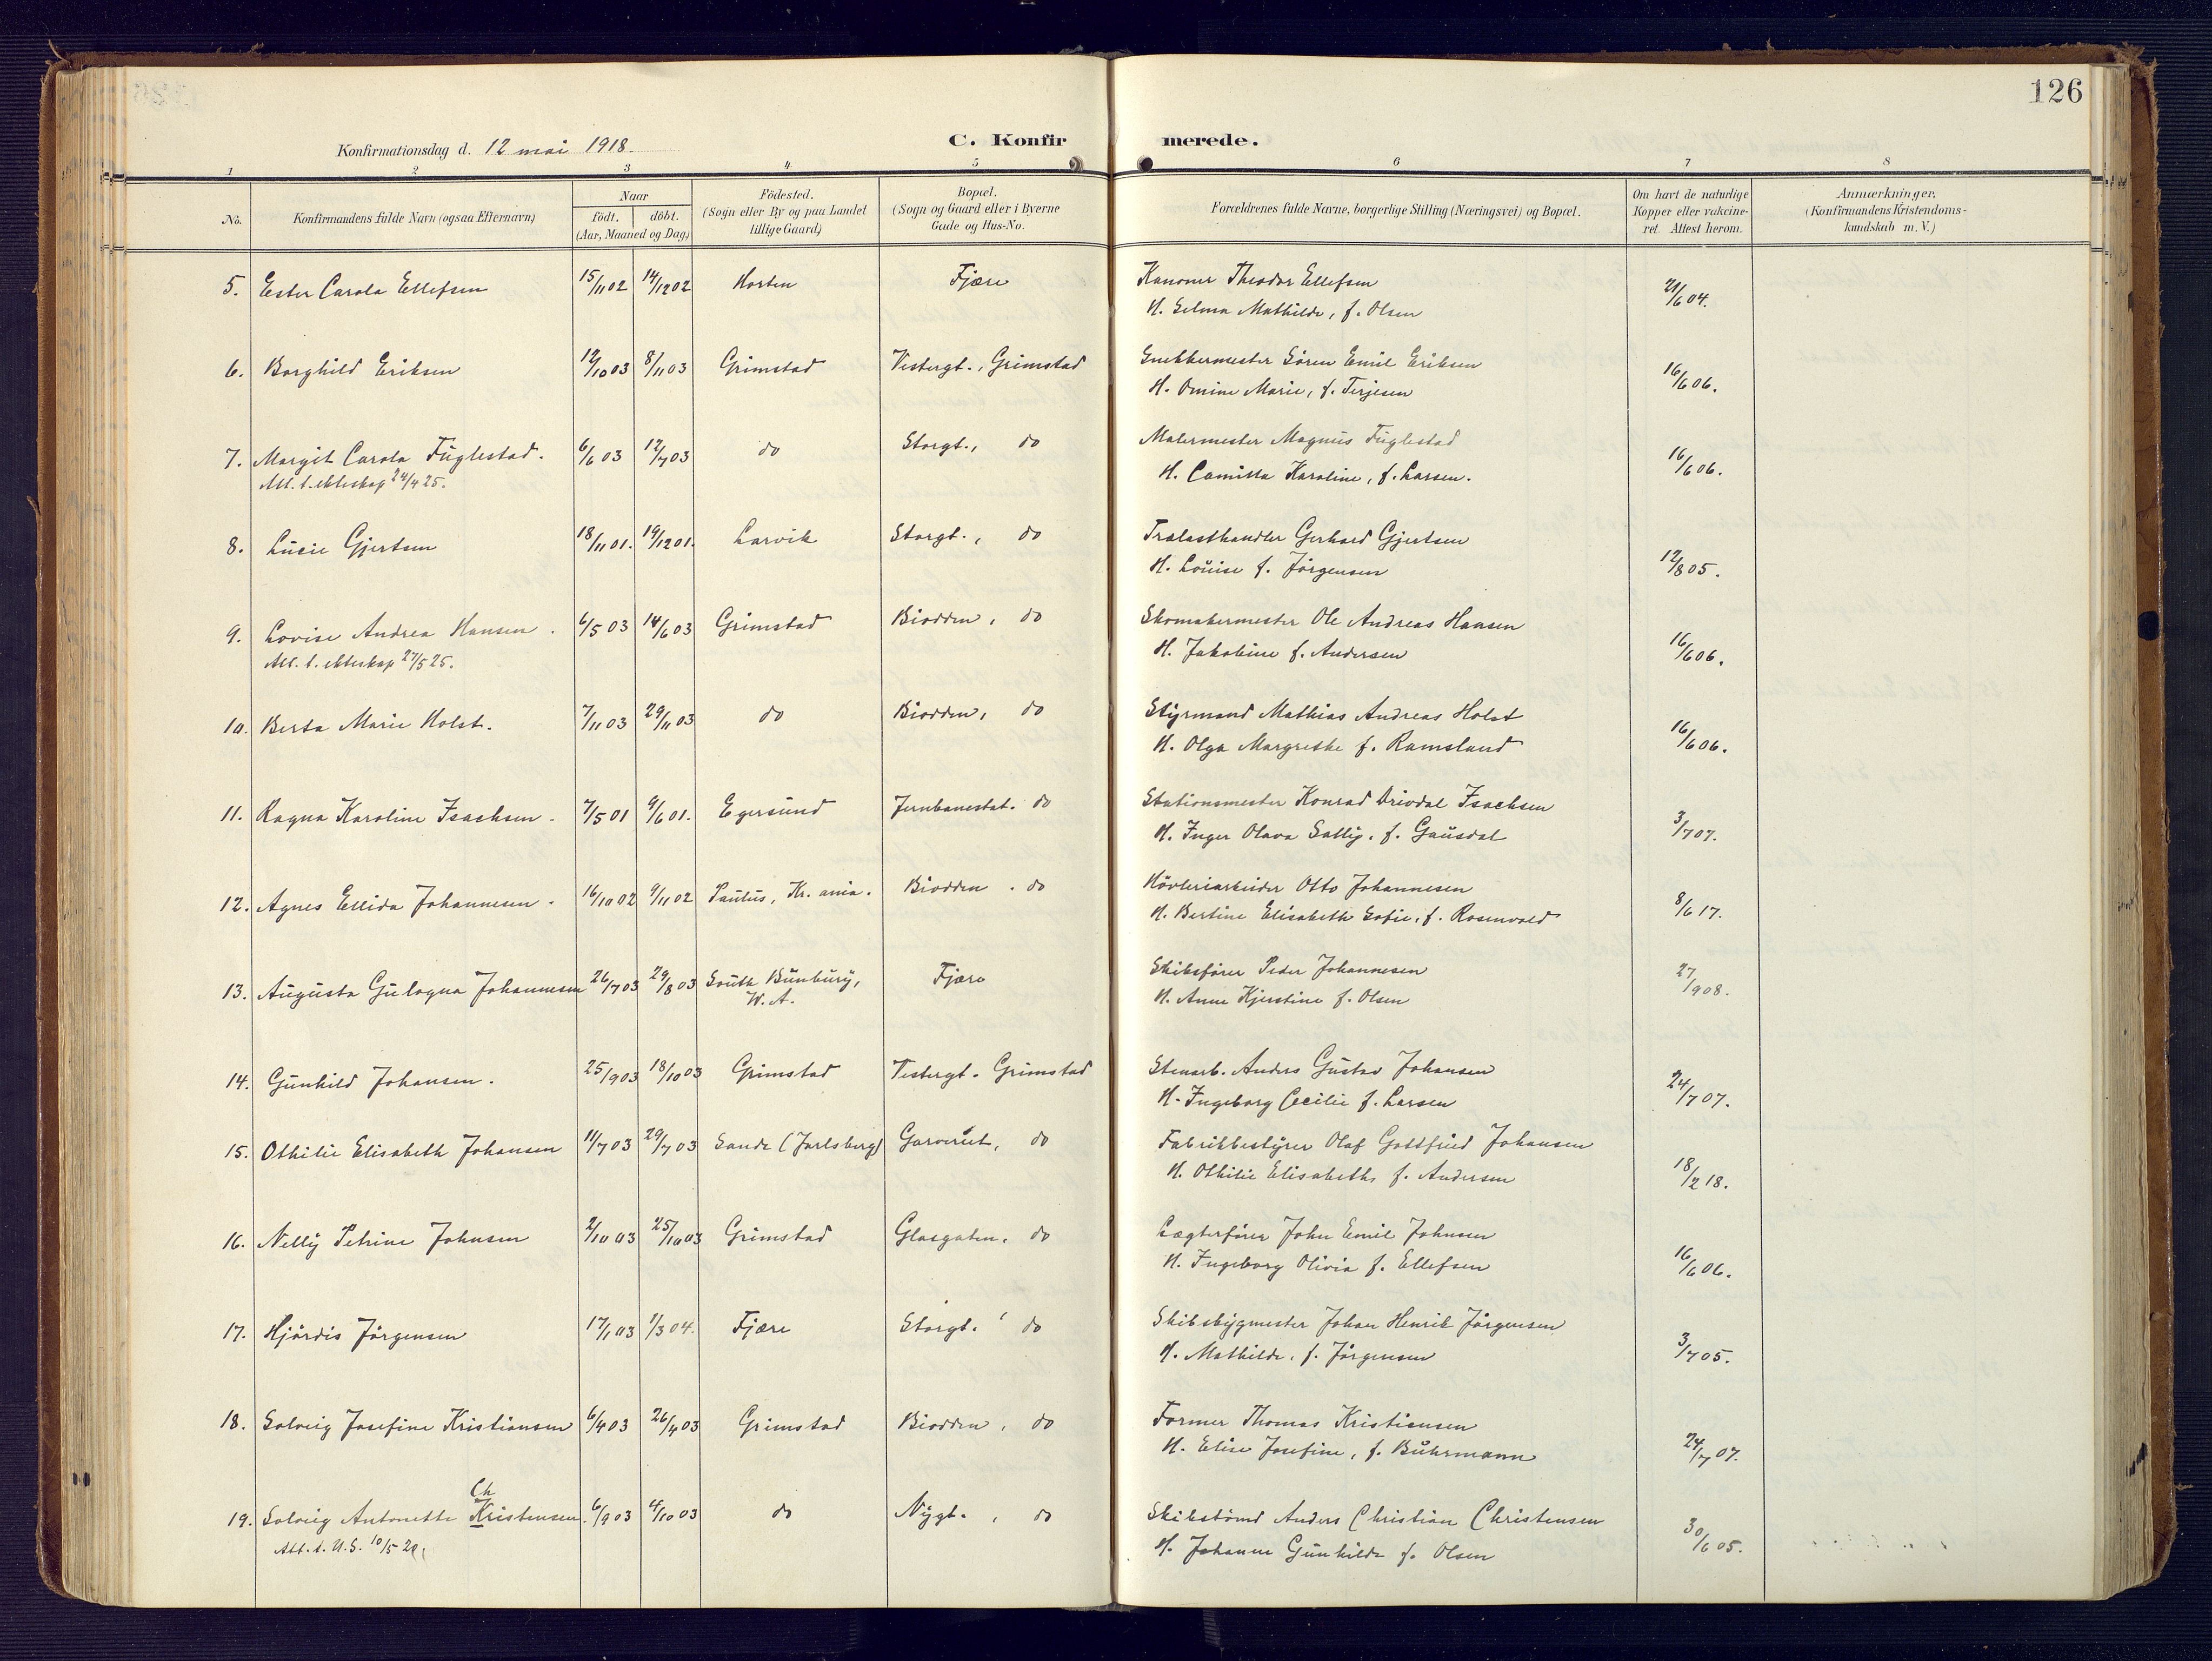 126
Konfirmationsdag d. 12 mai 1918.
C. Konfirmerede.
1 2 3 4 5 6 7 8
No.
Konfirmandens fulde Navn (ogsaa Efternavn)
Naar
födt. döbt.
(Aar, Maaned og Dag)
Födested.
(Sogn eller By og paa Landet
tillige Gaard)
Bopæl.
(Sogn og Gaard eller i Byerne
Gade og Hus-No.
Forældrenes fulde Navne, borgerlige Stilling (Næringsvei) og Bopæl.
Om havt de naturlige
Kopper eller vakcine-
ret. Attest herom.
Anmærkninger,
(Konfirmandens Kristendoms-
kundskab m. V.)
5. Ester Carola Ellefsen 15/11 02 14/12 02 Horten Fjære Kanoner Theodor Ellefsen 21/6 04.
H. Selma Mathilde, f. Olsen
6. Borghild Eriksen 12/10 03 8/11 03 Grimstad Vestergt., Grimstad Snekkermester Sören Emil Eriksen 16/6 06.
H. Omine Marie, f. Terjesen
7. Margit Carola Fuglestad. 6/6 03 12/7 03 do Storgt., do Malermester Magnus Fuglestad 16/6 06.
Att. t. ekteskap 24/4 25. H. Camilla Karoline, f. Larsen.
8. Lucie Gjertsen 18/11 01. 19/12 01. Larvik Storgt., do Trælasthandler Gerhard Gjertsen 12/8 05.
H. Louise f. Jörgensen
9. Lovise Andrea Hansen. 6/5 03 14/6 03 Grimstad Biodden, do Skomakermester Ole Andreas Hansen 16/6 06.
Att. t. ekteskap 27/5 25. H. Jakobine f. Andersen
10. Berta Marie Holst. 7/11 03 29/11 03 do Biodden, do Styrmand Mathias Andreas Holst 16/6 06.
H. Olga Margrethe f. Ramsland
11. Ragna Karoline Isachsen. 7/5 01 9/6 01. Egersund Jernbanestat. do Stationsmester Konrad Isachsen 3/7 07.
H. Inger Olava Sally, f. Gausdal
12. Agnes Ellida Johannesen. 16/10 02 9/11 02 Paulus, Kr.ania. Biodden. do Hövleriarbeider Otto Johannesen 8/6 17.
H. Bertine Elisabeth Sofie, f. Rosenvold
13. Augusta Gulagna Johannesen 26/7 03 29/8 03 South Bunbury, Fjære Skibsförer Peder Johannesen 27/9 08.
W. A. H. Anne Kjerstine f. Olsen
14. Gunhild Johansen. 25/9 03 18/10 03 Grimstad Vestergt. Grimstad Stenarb. Anders Gustav Johansen 24/7 07.
H. Ingeborg Cecilie f. Larsen
15. Othilie Elisabeth Johansen 11/7 03 29/7 03 Sande (Jarlsberg) Garveriet, do Fabrikbestyrer Olaf Gottfried Johansen 18/2 18.
H. Othilie Elisabeth f. Andersen
16. Nelly Petrine Johnsen 2/10 03 25/10 03 Grimstad Glasgaten, do Lægterförer John Emil Johnsen 16/6 06.
H. Ingeborg Olivia f. Ellefsen
17. Hjördis Jörgensen 17/1 03 1/3 04. Fjære Storgt. do Skibsbygmester Johan Henrik Jörgensen 3/7 05.
H. Mathilde, f. Jörgensen
18. Solveig Josefine Kristiansen 6/4 03 26/4 03 Grimstad Biodden, do Former Thomas Kristiansen 24/7 07.
H. Elise Josefine, f. Buhrmann
Ch
19. Solveig Antonette Kristensen. 6/9 03 4/10 03 do Nygt., do Skibstömd Anders Christian Christensen 30/6 05.
Att. t. U.S. 10/5 20. H. Johanne Gunhilde f. Olsen